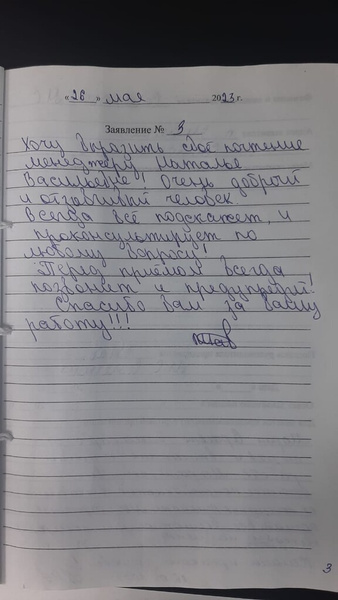 «26» мая 2023 г.
Заявление № 3
Хочу выразить своё почтение
менеджеру Наталье
Васильевне! Очень добрый
и отзывчивый человек
Всегда всё подскажет, и
проконсультирует по
любому вопросу!
Перед приёмом всегда
позвонит и предупредит!
Спасибо вам за вашу
работу!!!
3